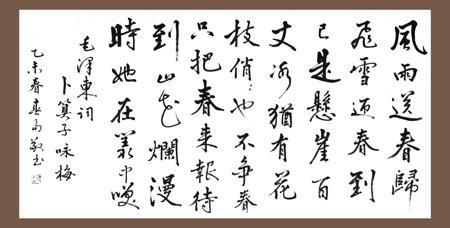 風雨送春歸
飛雪迎春到
已是懸崖百
丈冰猶有花
枝俏〻也不争春
只把春来報待
到山花爛漫
時她在叢中咲
毛澤東詞
卜算子咏梅
乙未春